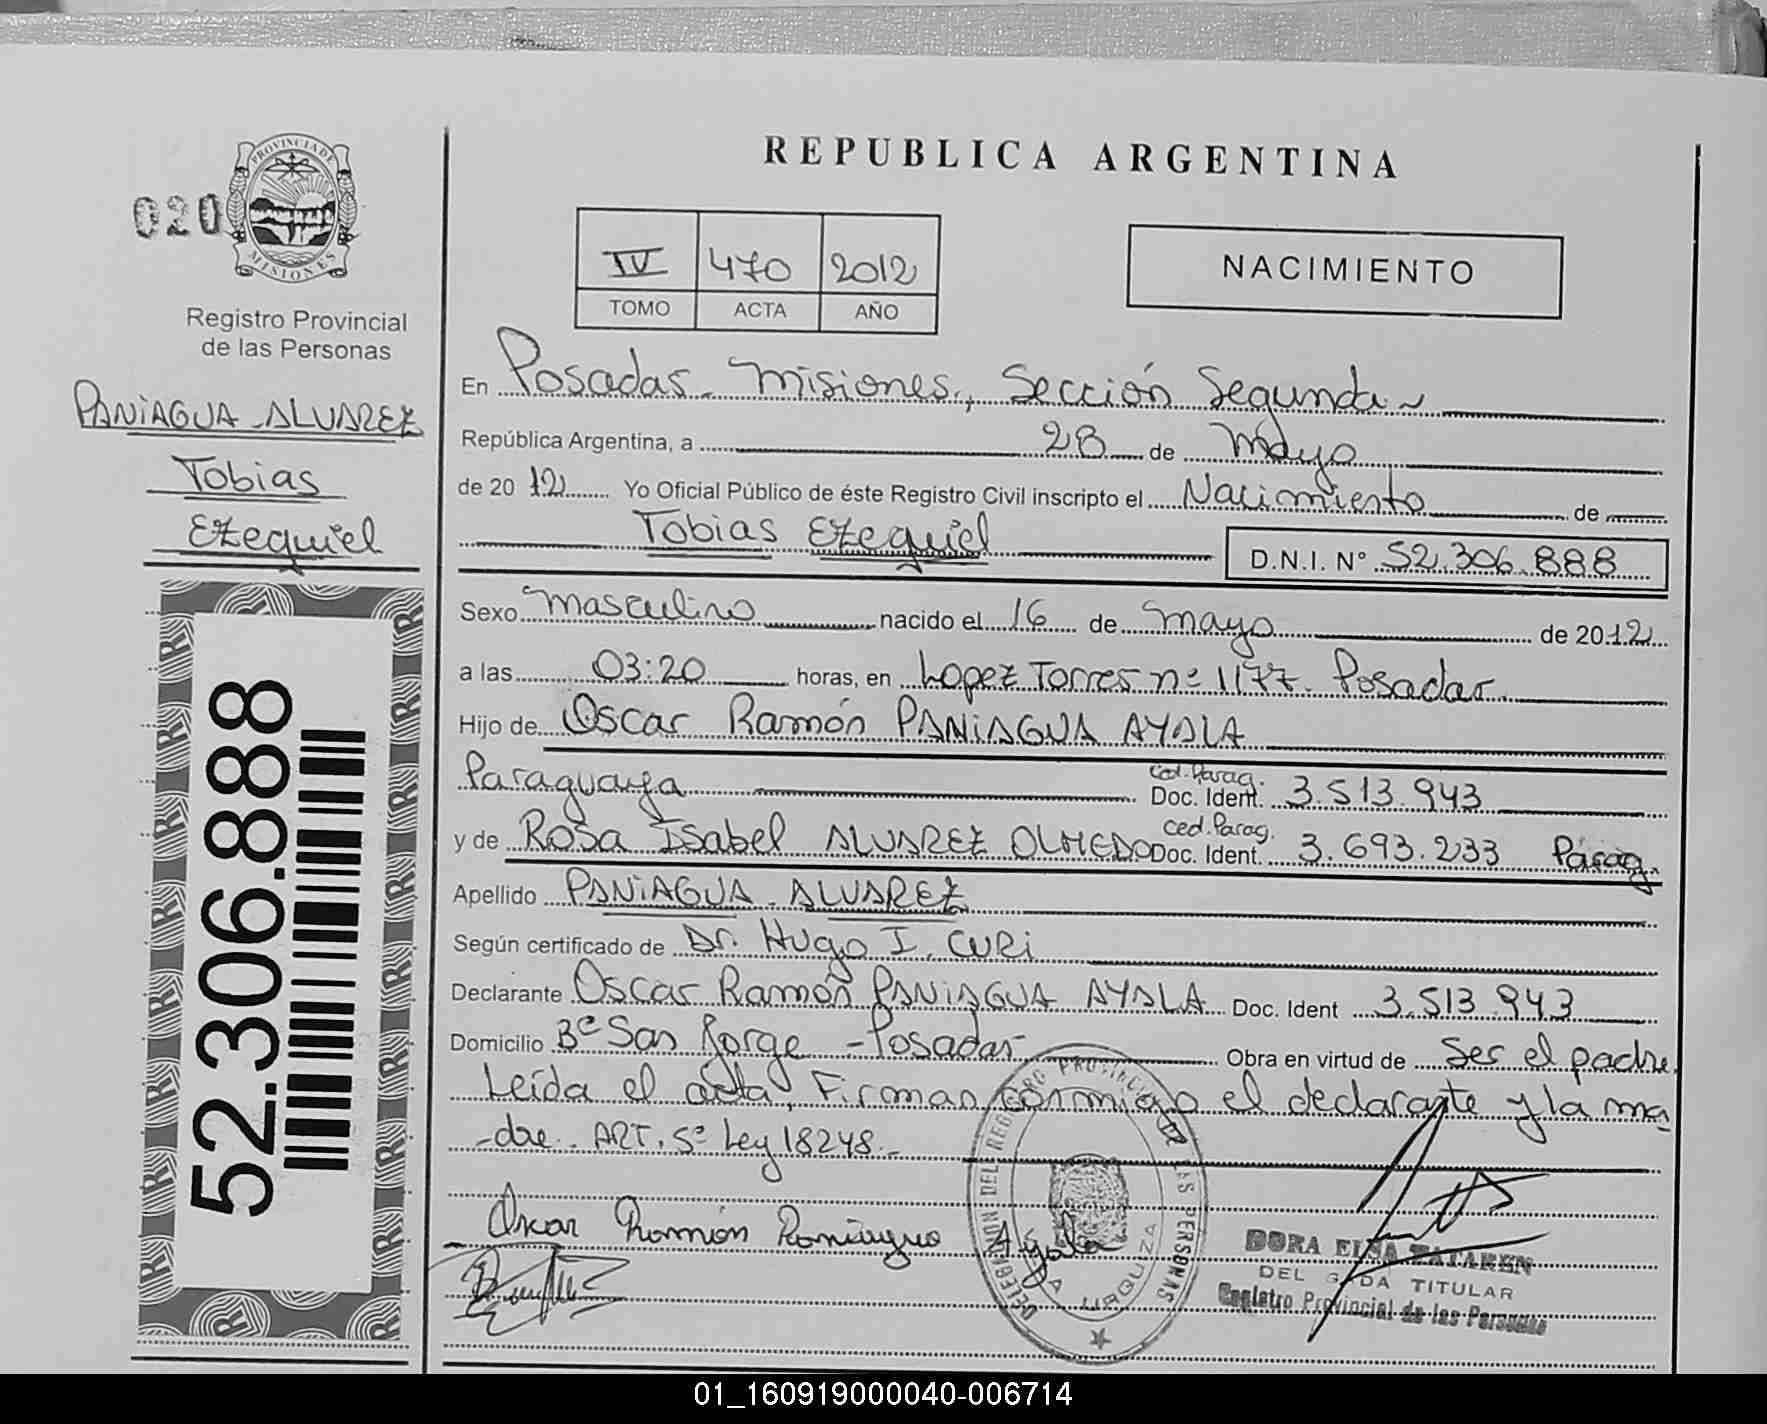 REPUBLICA ARGENTINA
020
PROVINCIA DE
MISIONES
Registro Provincial
de las Personas
PANIAGUA - ALVAREZ
Tobias
Ezequiel
52.306.888
IV 470 2012
TOMO ACTA AÑO
NACIMIENTO
En Posadas - Misiones, Sección Segunda
República Argentina, a 28 de Mayo
de 20 12 Yo Oficial Público de éste Registro Civil inscripto el Nacimiento de
Tobias Ezequiel D.N.I. N° 52.306.888
Sexo Masculino nacido el 16 de Mayo de 20 12
a las 03:20 horas, en Lopez Torres nº 1177. Posadas
Hijo de Oscar Ramón PANIAGUA AYALA
Paraguaya Ced. Parag. Doc. Ident. 3.513.943
y de Rosa Isabel ALVAREZ OLMEDO Ced. Parag. Doc. Ident. 3.693.233 Parag.
Apellido PANIAGUA - ALVAREZ
Según certificado de Dr. Hugo I. CURI
Declarante Oscar Ramón PANIAGUA AYALA Doc. Ident 3.513.943
Domicilio Bº San Jorge - Posadas Obra en virtud de Ser el padre.
Leída el acta, Firman conmigo el declarante y la ma
-dre. ART. 5º Ley 18248.-
Oscar Ramón Paniagua Ayala
DELEGACION DEL REGISTRO PROVINCIAL DE LAS PERSONAS
URQUIZA
DORA ELSA
DEL GADA TITULAR
Registro Provincial de las Personas
01_160919000040-006714